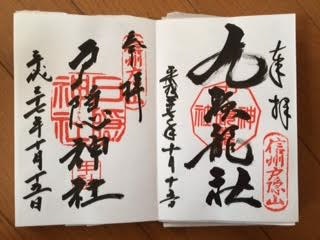 奉拝
九頭龍社
信州戸隠山
平成二十七年十月十五日
奉拝
戸隠神社
戸隠神社
平成二十七年十月十五日